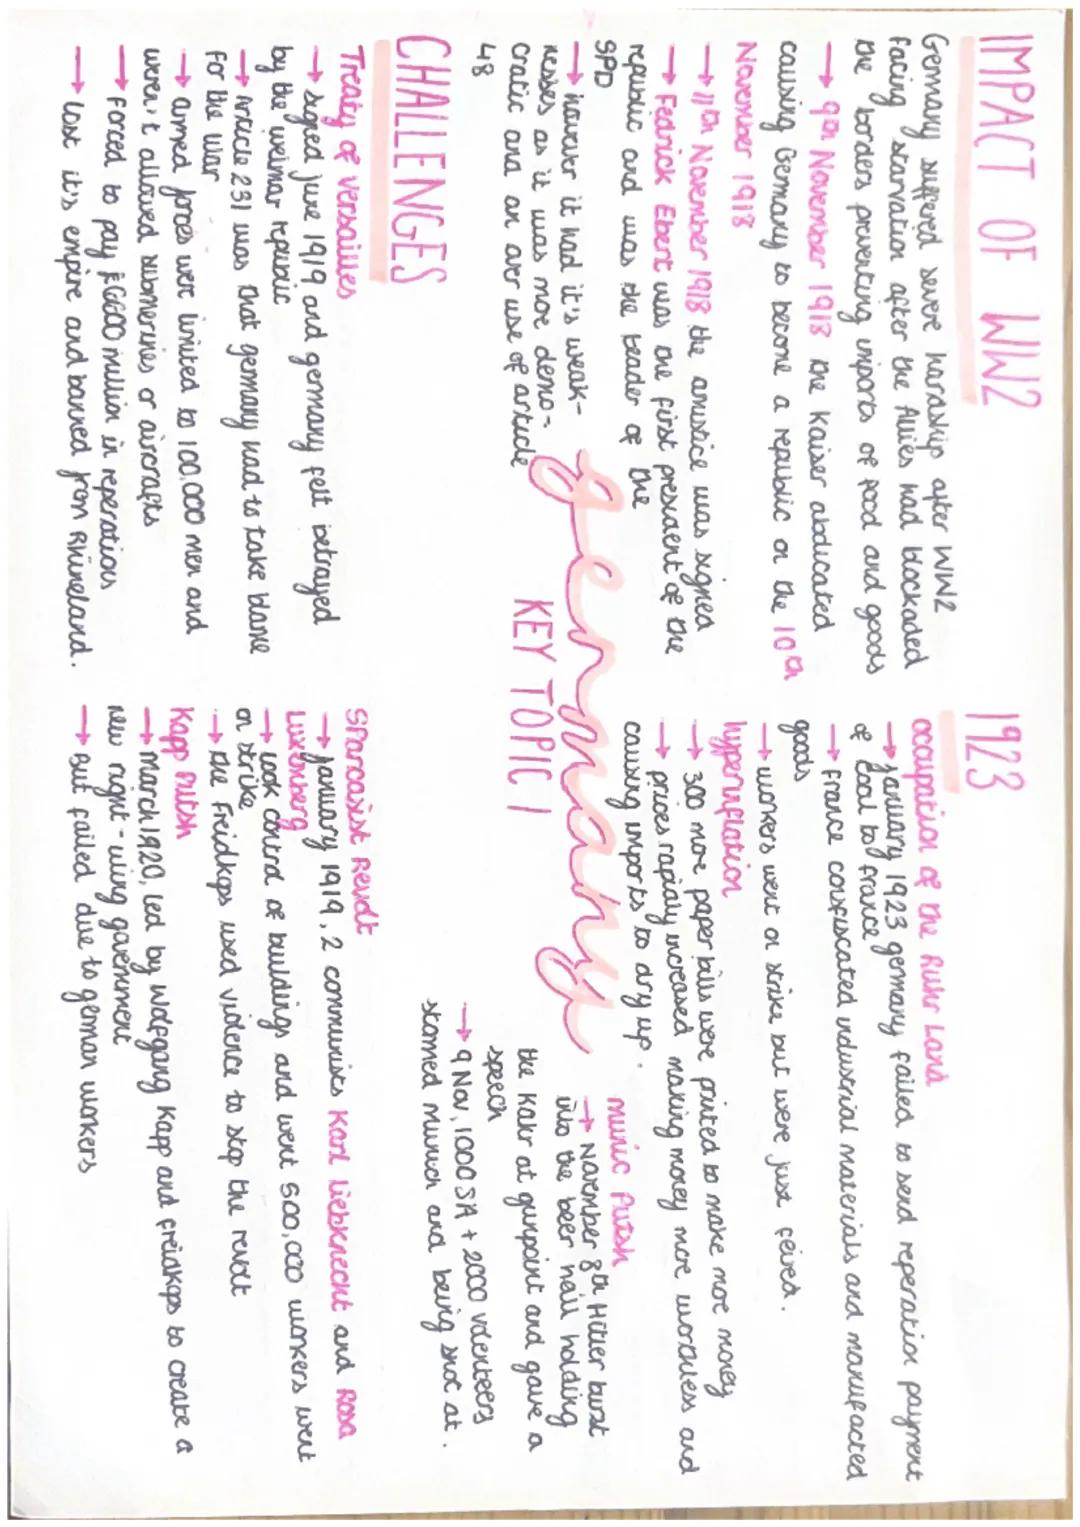 IMPACT OF WW2
Germany suffered severe hardship after WW2
facing starvation after the Allies had blockaded
the borders preventing imports of food and goods
→ 9th November 1918 the Kaiser abdicated
causing Germany to become a republic on the 10th
November 1918
→ 11th November 1918 the amistice was signed
→ Fedrick Ebert was the first president of the
republic and was the leader of the
SPD
→ however it had it's weak-
nesses as it was more demo-
cratic and an over use of article
48
CHALLENGES
Treaty of versailles
→ signed june 1919 and germany felt betrayed
by the weimar republic
→ Article 231 was that germany had to take blame
for the war
→ armed forces were limited to 100,000 men and
weren't allowed submerines or aircrafts
→ Forced to pay £6600 million in reperations
→ Lost it's empire and banned from Rhineland.
germany
KEY TOPIC 1
1923
occupation of the Ruhr Land
→ january 1923 germany failed to send reperation payment
of coal to france
→ France confiscated industrial materials and manufacted
goods
→ workers went on strike but were just feired.
hyperinflation
→ 300 more paper bills were printed to make more money
→ prices rapidly increased making money more worthless and
causing imports to dry up.
munic Putsh
→ November 8th Hitler burst
into the beer hall holding
the Kahr at gunpoint and gave a
speech
→ 9 Nov, 1000 SA + 2000 volenteers
stormed Munich and being shot at.
Sparcasist Revolt
→ january 1919, 2 communists Karl Liebknecht and Rosa
Luxemberg
→ took control of buildings and went 500,000 workers went
on strike
→ the Freidkops used violence to stop the revolt
Kapp Putsh
→ march 1920, led by wolfgang Kapp and freidkops to create a
new right-wing government
→ But failed due to german workers